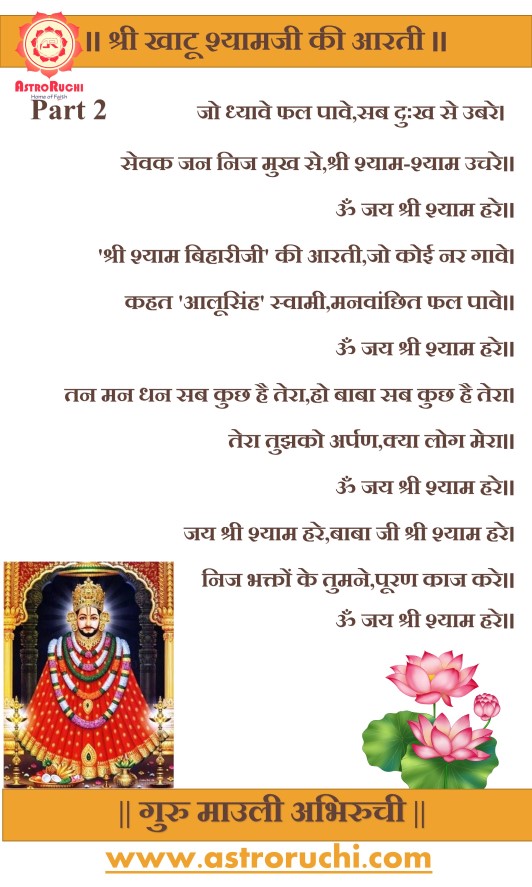 || श्री खाटू श्यामजी की आरती ||
ASTRORUCHI
Home of Faith
Part 2
जो ध्यावे फल पावे,सब दुःख से उबरे।
सेवक जन निज मुख से,श्री श्याम-श्याम उचरे॥
ॐ जय श्री श्याम हरे॥
'श्री श्याम बिहारीजी' की आरती,जो कोई नर गावे।
कहत 'आलूसिंह' स्वामी,मनवांछित फल पावे॥
ॐ जय श्री श्याम हरे॥
तन मन धन सब कुछ है तेरा,हो बाबा सब कुछ है तेरा।
तेरा तुझको अर्पण,क्या लोग मेरा॥
ॐ जय श्री श्याम हरे॥
जय श्री श्याम हरे,बाबा जी श्री श्याम हरे।
निज भक्तों के तुमने,पूरण काज करे॥
ॐ जय श्री श्याम हरे॥
|| गुरु माउली अभिरुची ||
www.astroruchi.com